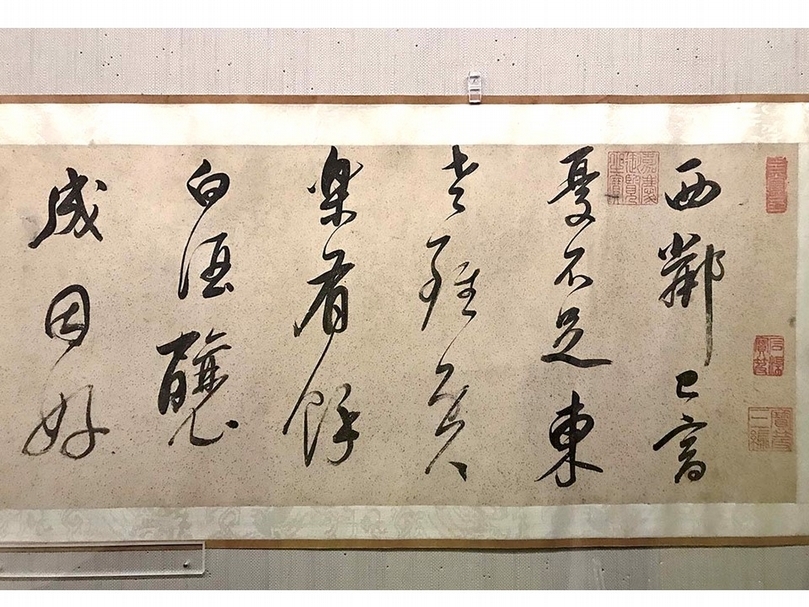 西鄰已富
憂不足東
老雖貧
樂有餘
白酒釀
成因好